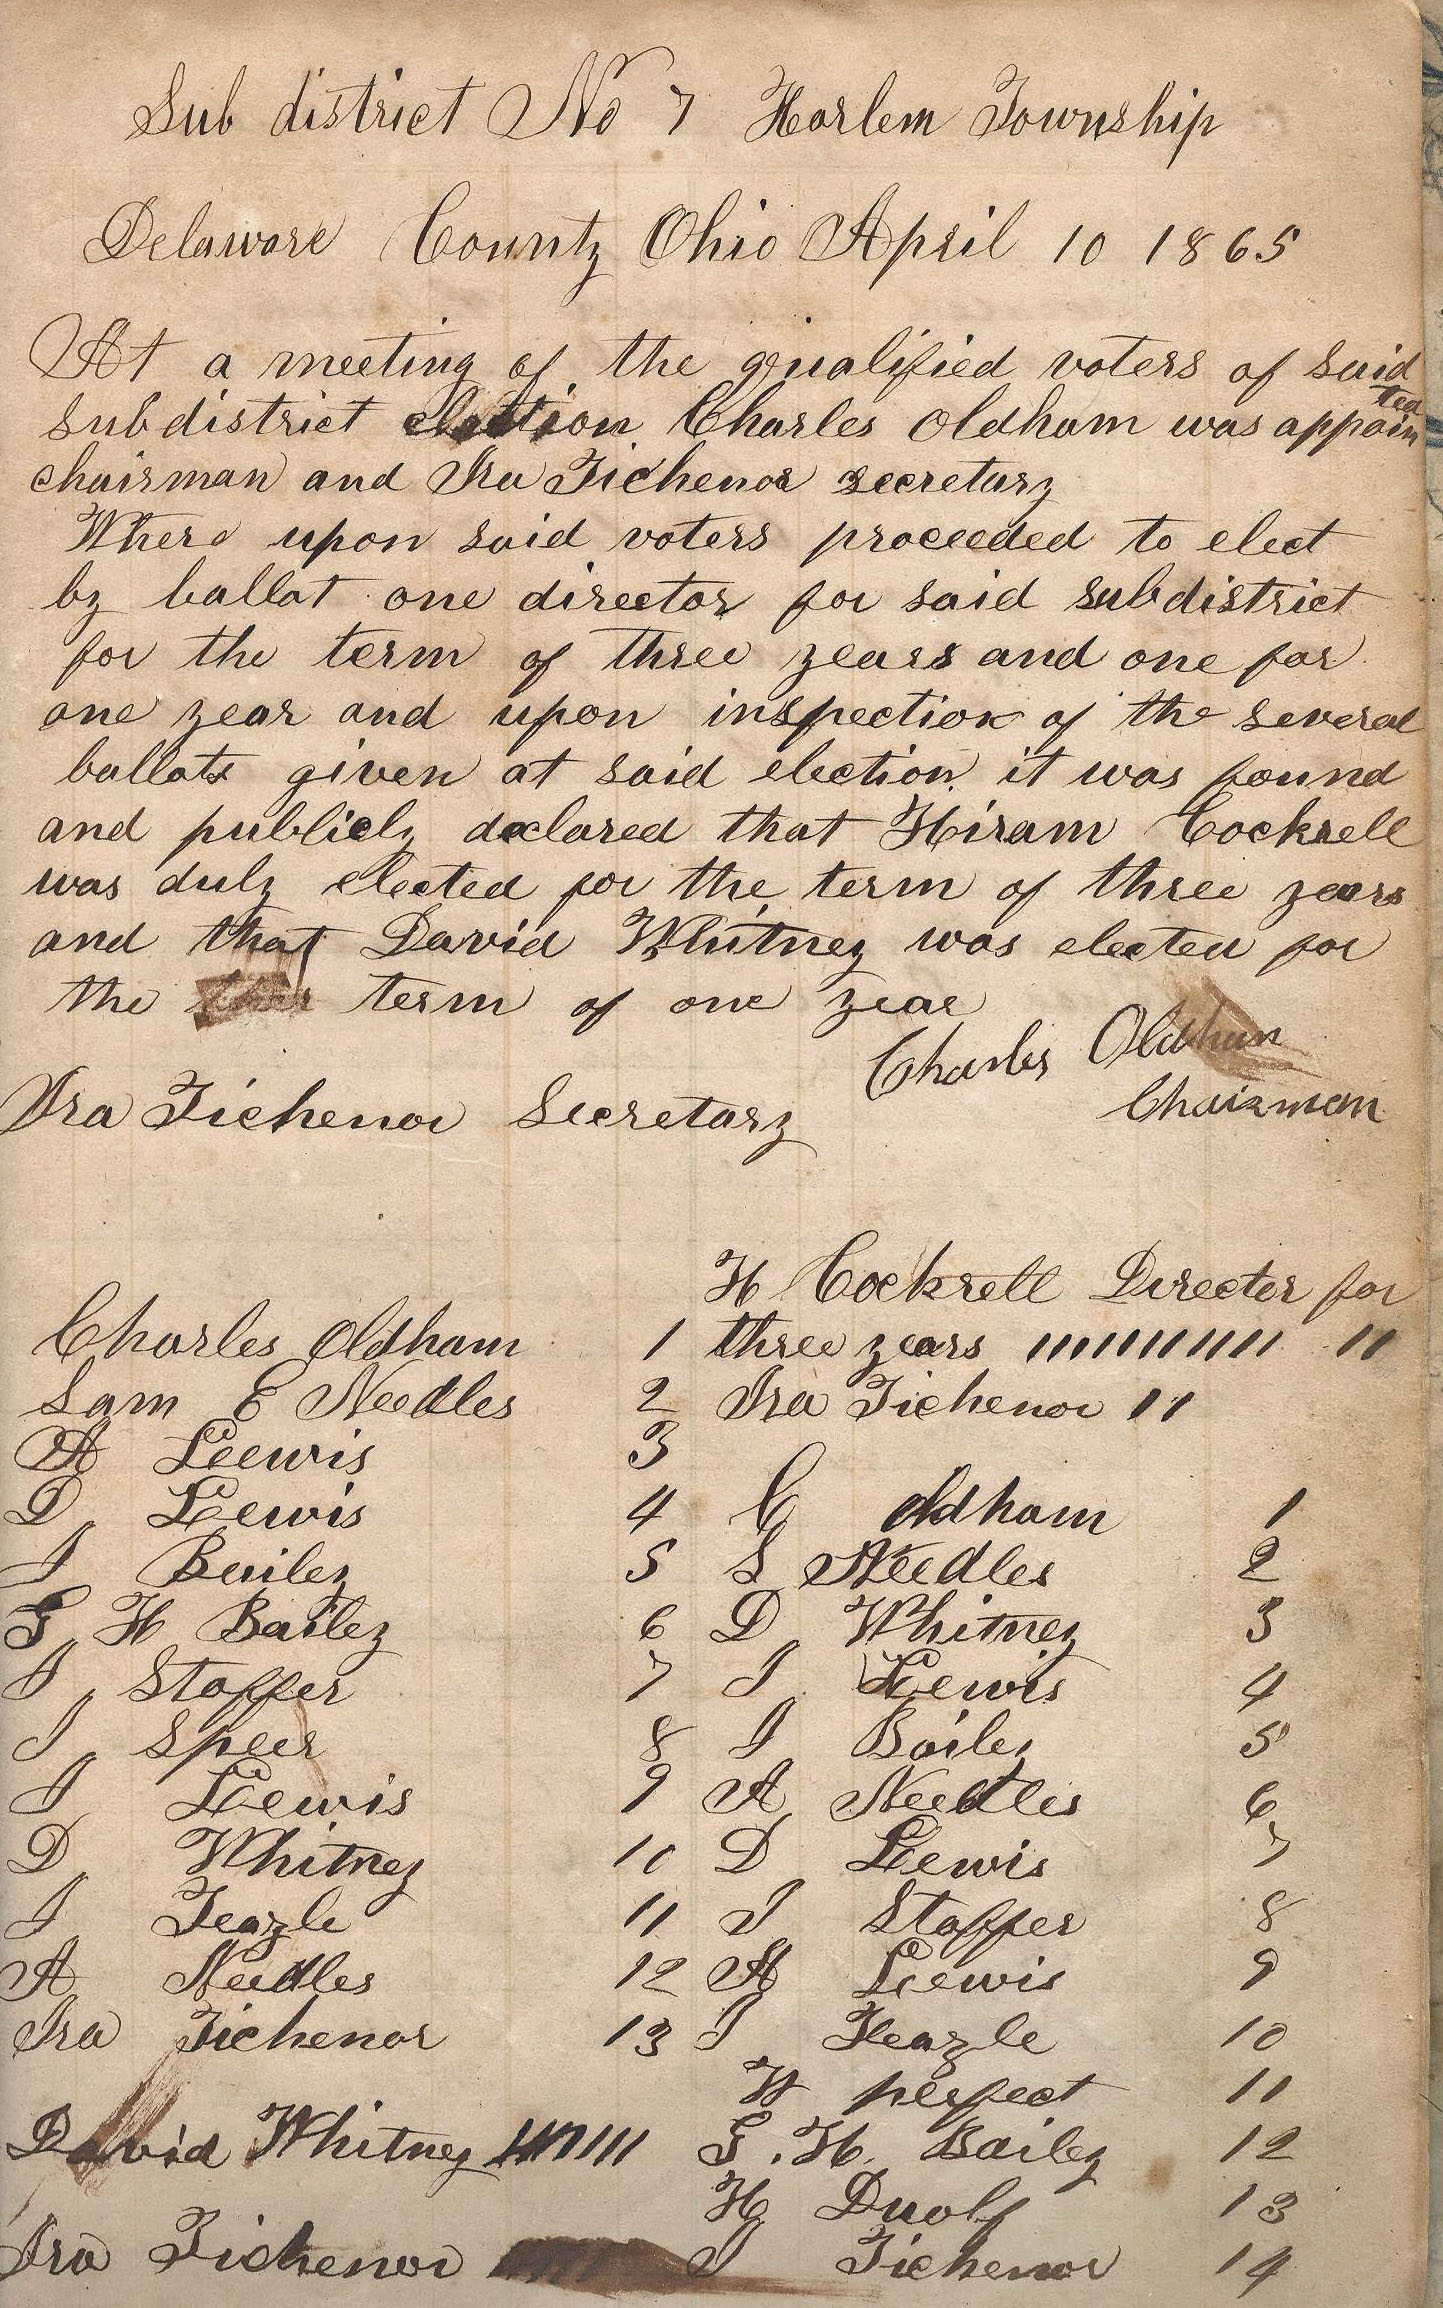 Sub district No 7 Harlem Township
Delaware County Ohio April 10 1865
At a meeting of the qualified voters of said
subdistrict election Charles Oldham was appointed
chairman and Ira Tichenor secretary
Where upon said voters proceeded to elect
by ballot one director for said subdistrict
for the term of three years and one for
one year and upon inspection of the several
ballots given at said election it was found
and publicly declared that Hiram Cockrell
was duly elected for the term of three years
and that David Whitney was elected for
the term of one year
Charles Oldham
Chairman
Ira Tichenor Secretary
H Cockrell Director for
three years 11111111111 11
Ira Tichenor 11
Charles Oldham 1
Sam E Needles 2
A Leewis 3
D Lewis 4
J Bailey 5
G H Bailey 6
J, Stoffer 7
J, Speer 8
J, Lewis 9
D, Whitney 10
J, Feazle 11
A Needles 12
Ira Tichenor 13
David Whitney
Ira Tichenor
C Oldham 1
S Needles 2
D, Whitney 3
J, Lewis 4
J, Bailey 5
A, Needles 6
D, Lewis 7
J Stoffer 8
A, Lewis 9
J Feazle 10
W perfect 11
G. H. Bailey 12
H Duolf 13
J Tichenor 14